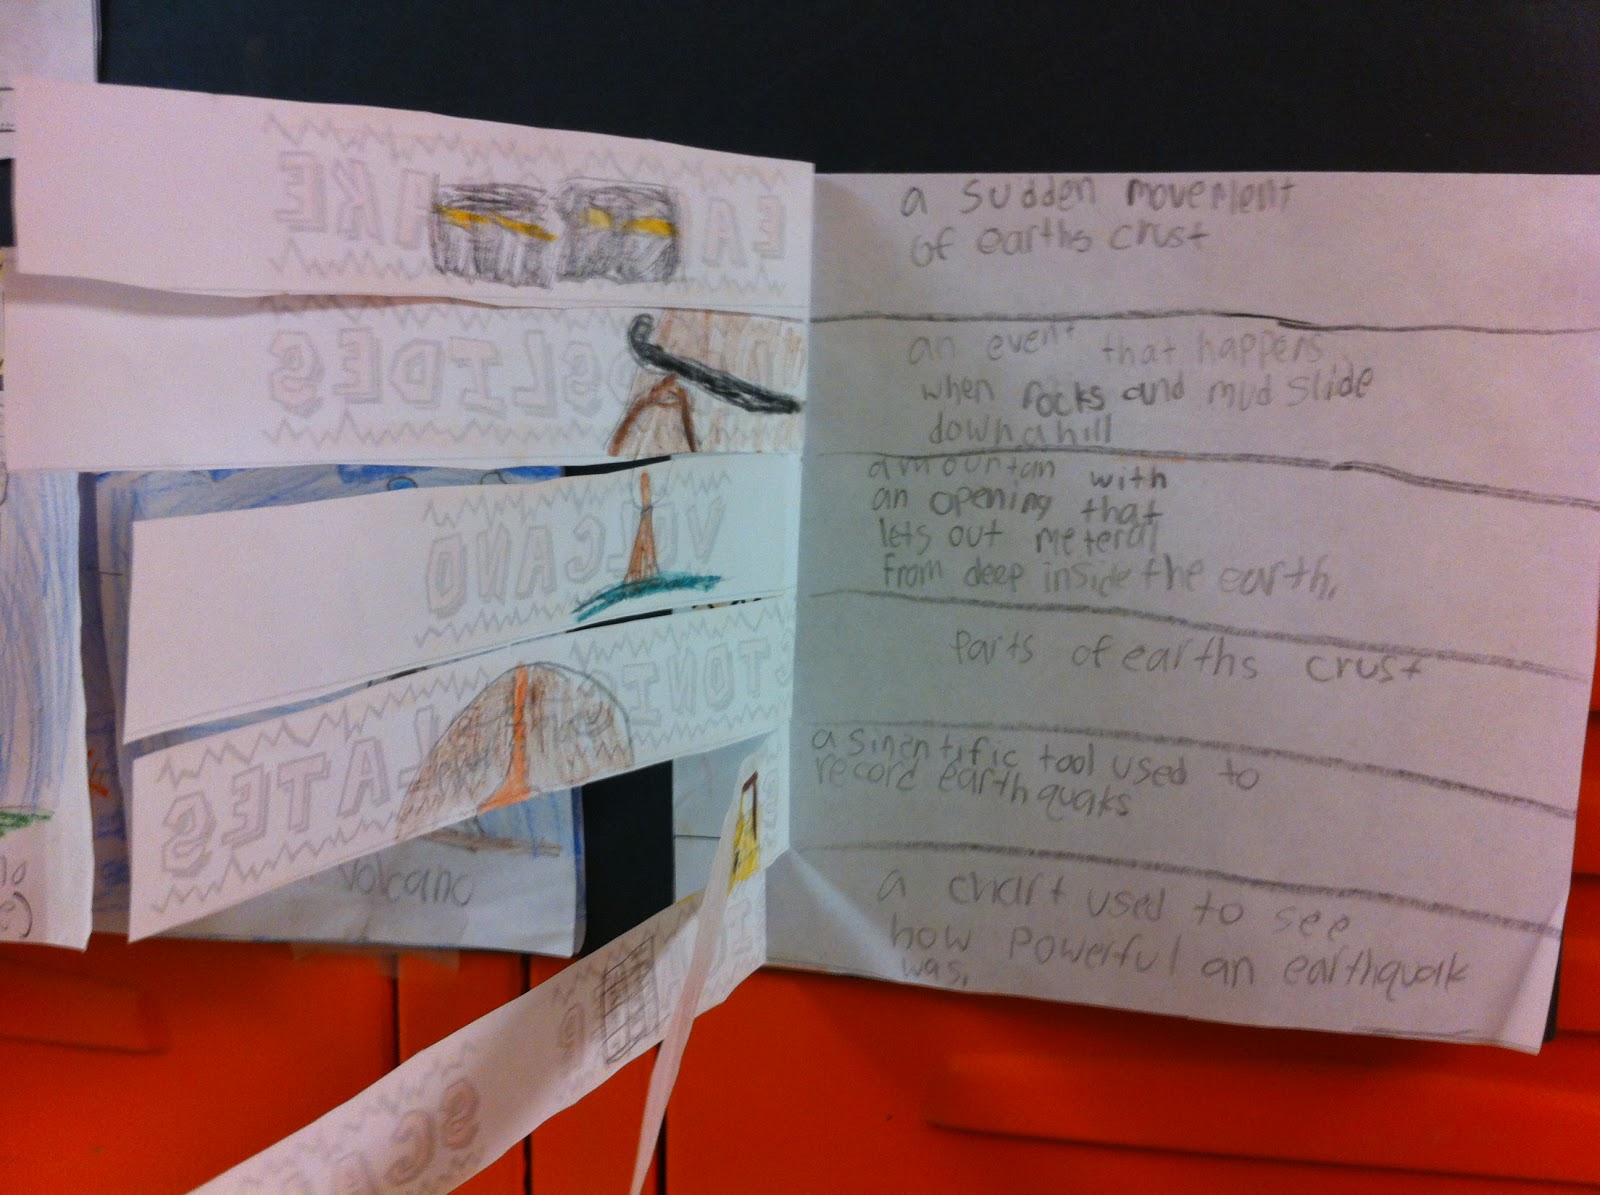 EARTHQUAKE
LANDSLIDES
VOLCANO
TECTONIC
PLATES
SCALE
volcano
a sudden movement
of earths crust
an event that happens
when rocks and mud slide
down a hill
a mountain with
an opening that
lets out meteral
from deep inside the earth.
Parts of earths crust
a sinentific tool used to
record earthquaks
a chart used to see
how powerful an earthquak
was.